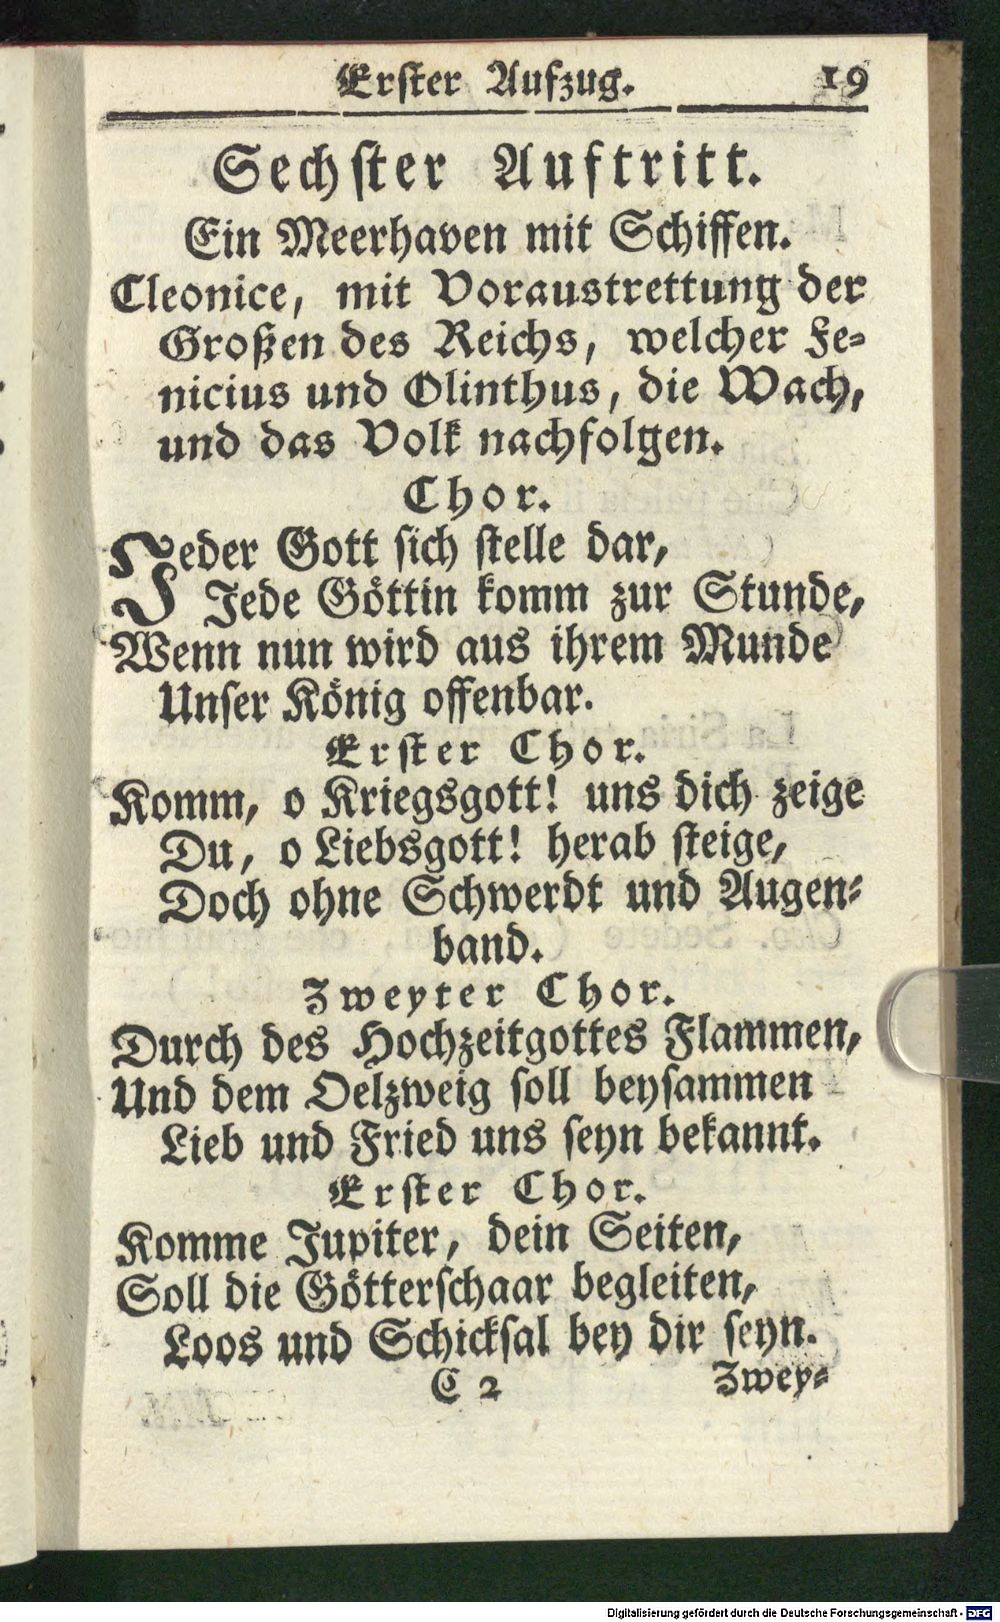 Erster Aufzug. 19
Sechster Auftritt.
Ein Meerhaven mit Schiffen.
Cleonice, mit Voraustrettung der
Großen des Reichs, welcher Fe-
nicius und Olinthus, die Wach,
und das Volk nachfolgen.
Chor.
Jeder Gott sich stelle dar,
Jede Göttin komm zur Stunde,
Wenn nun wird aus ihrem Munde
Unser König offenbar.
Erster Chor.
Komm, o Kriegsgott! uns dich zeige
Du, o Liebsgott! herab steige,
Doch ohne Schwerdt und Augen-
band.
Zweyter Chor.
Durch des Hochzeitgottes Flammen,
Und dem Oelzweig soll beysammen
Lieb und Fried uns seyn bekannt.
Erster Chor.
Komme Jupiter, dein Seiten,
Soll die Götterschaar begleiten,
Loos und Schicksal bey dir seyn.
C 2 Zwey-
Digitalisierung gefördert durch die Deutsche Forschungsgemeinschaft - DFG